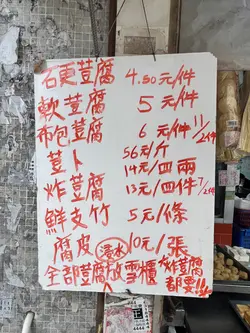 石更荳腐 4.50元/件
軟荳腐 5元/件
布包荳腐 6元/件 11/2件
荳卜 56元/斤
14元/四兩
炸荳腐 13元/四件 7/2件
鮮支竹 5元/條
腐皮 10元/張
全部荳腐放雪櫃 浸水 炸荳腐都要!!